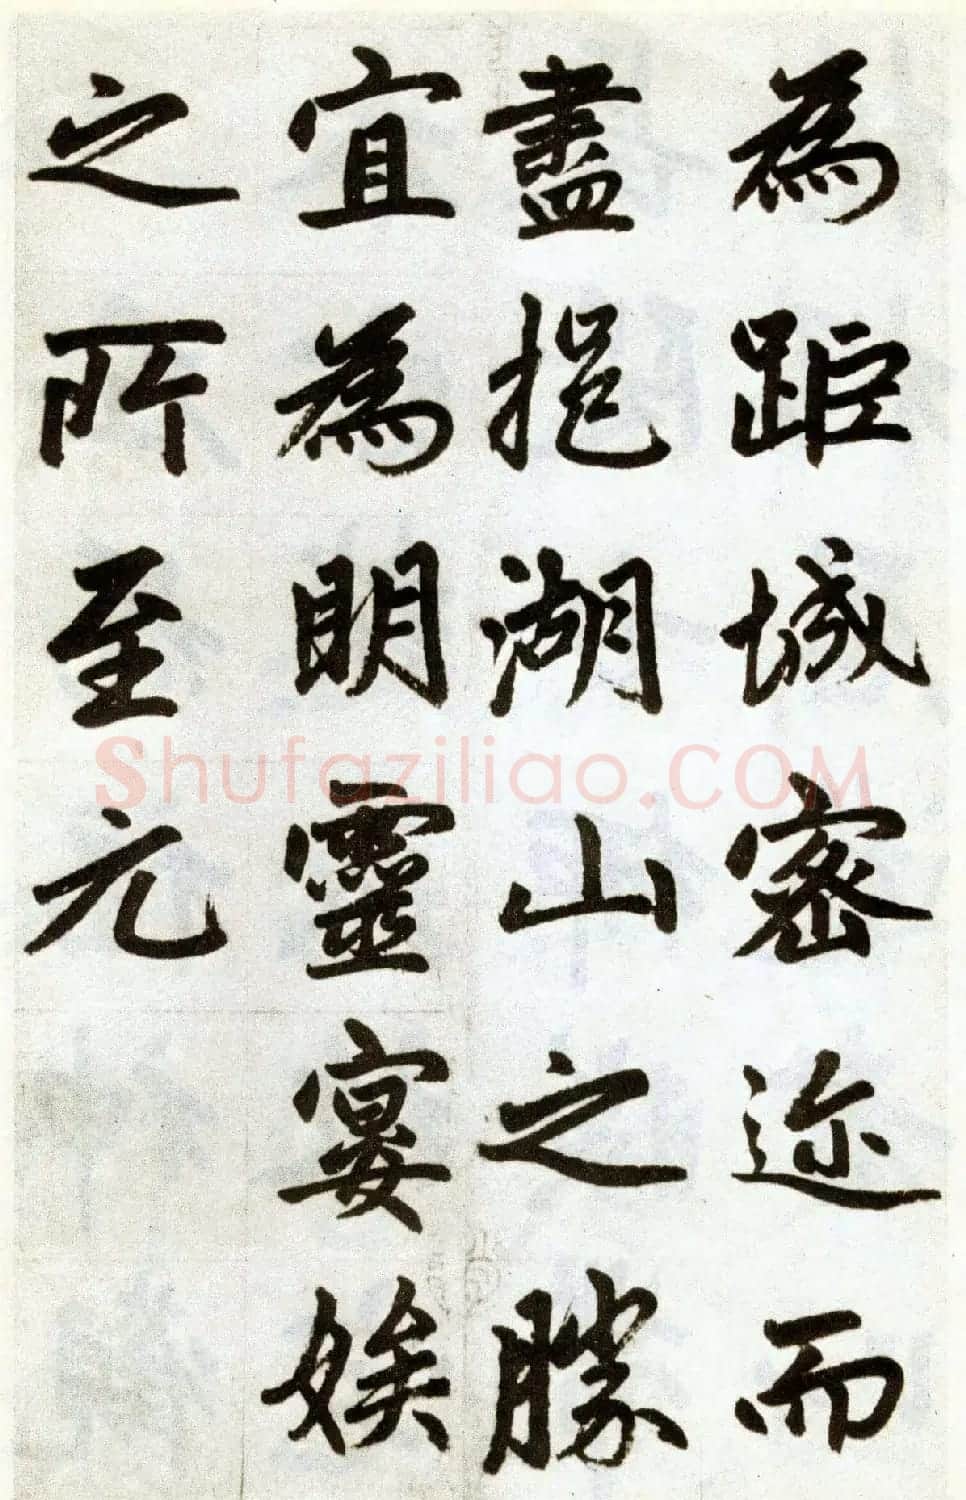 為距城密迩而
盡挹湖山之勝
宜為明靈宴娭
之所至元
Shufaziliao.COM